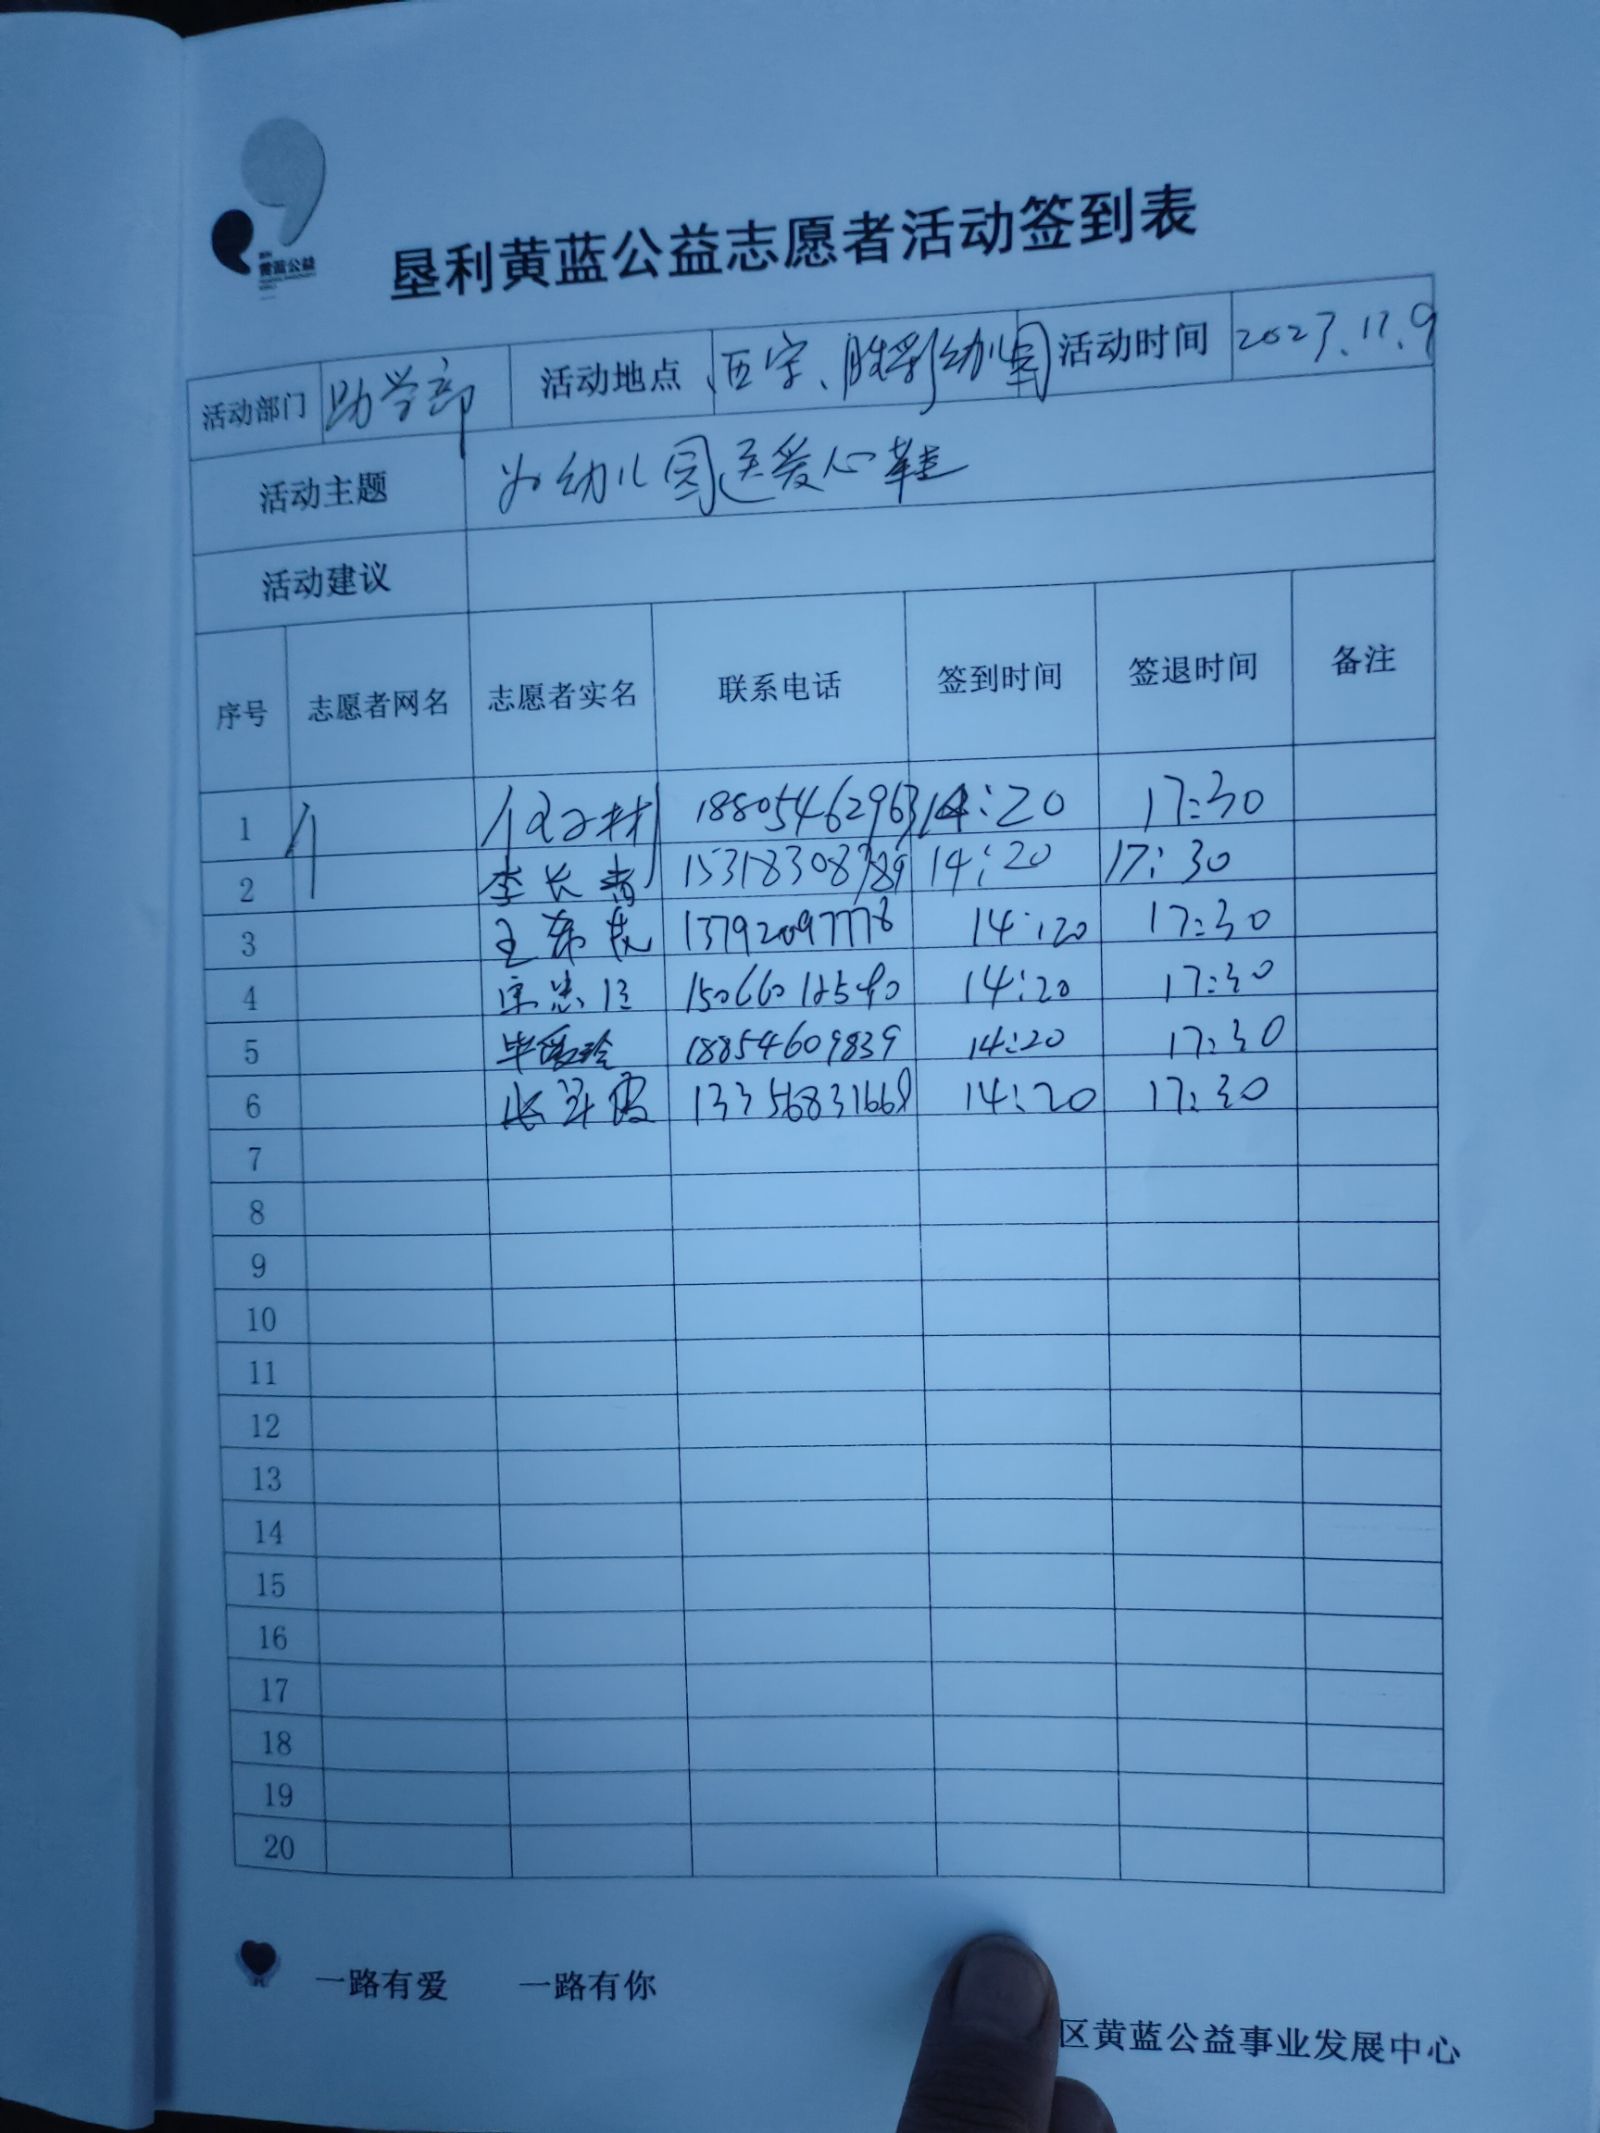 黄蓝公益
垦利黄蓝公益志愿者活动签到表
活动部门 助学部 活动地点 西宋、胜利幼儿园 活动时间 2023.11.9
活动主题 为幼儿园送爱心鞋
活动建议
序号 志愿者网名 志愿者实名 联系电话 签到时间 签退时间 备注
1 18805462963 14:20 17:30
2 李长青 15318308789 14:20 17:30
3 13792097778 14:20 17:30
4 14:20 17:30
5 18854609839 14:20 17:30
6 13356831668 14:20 17:30
7
8
9
10
11
12
13
14
15
16
17
18
19
20
一路有爱 一路有你
区黄蓝公益事业发展中心